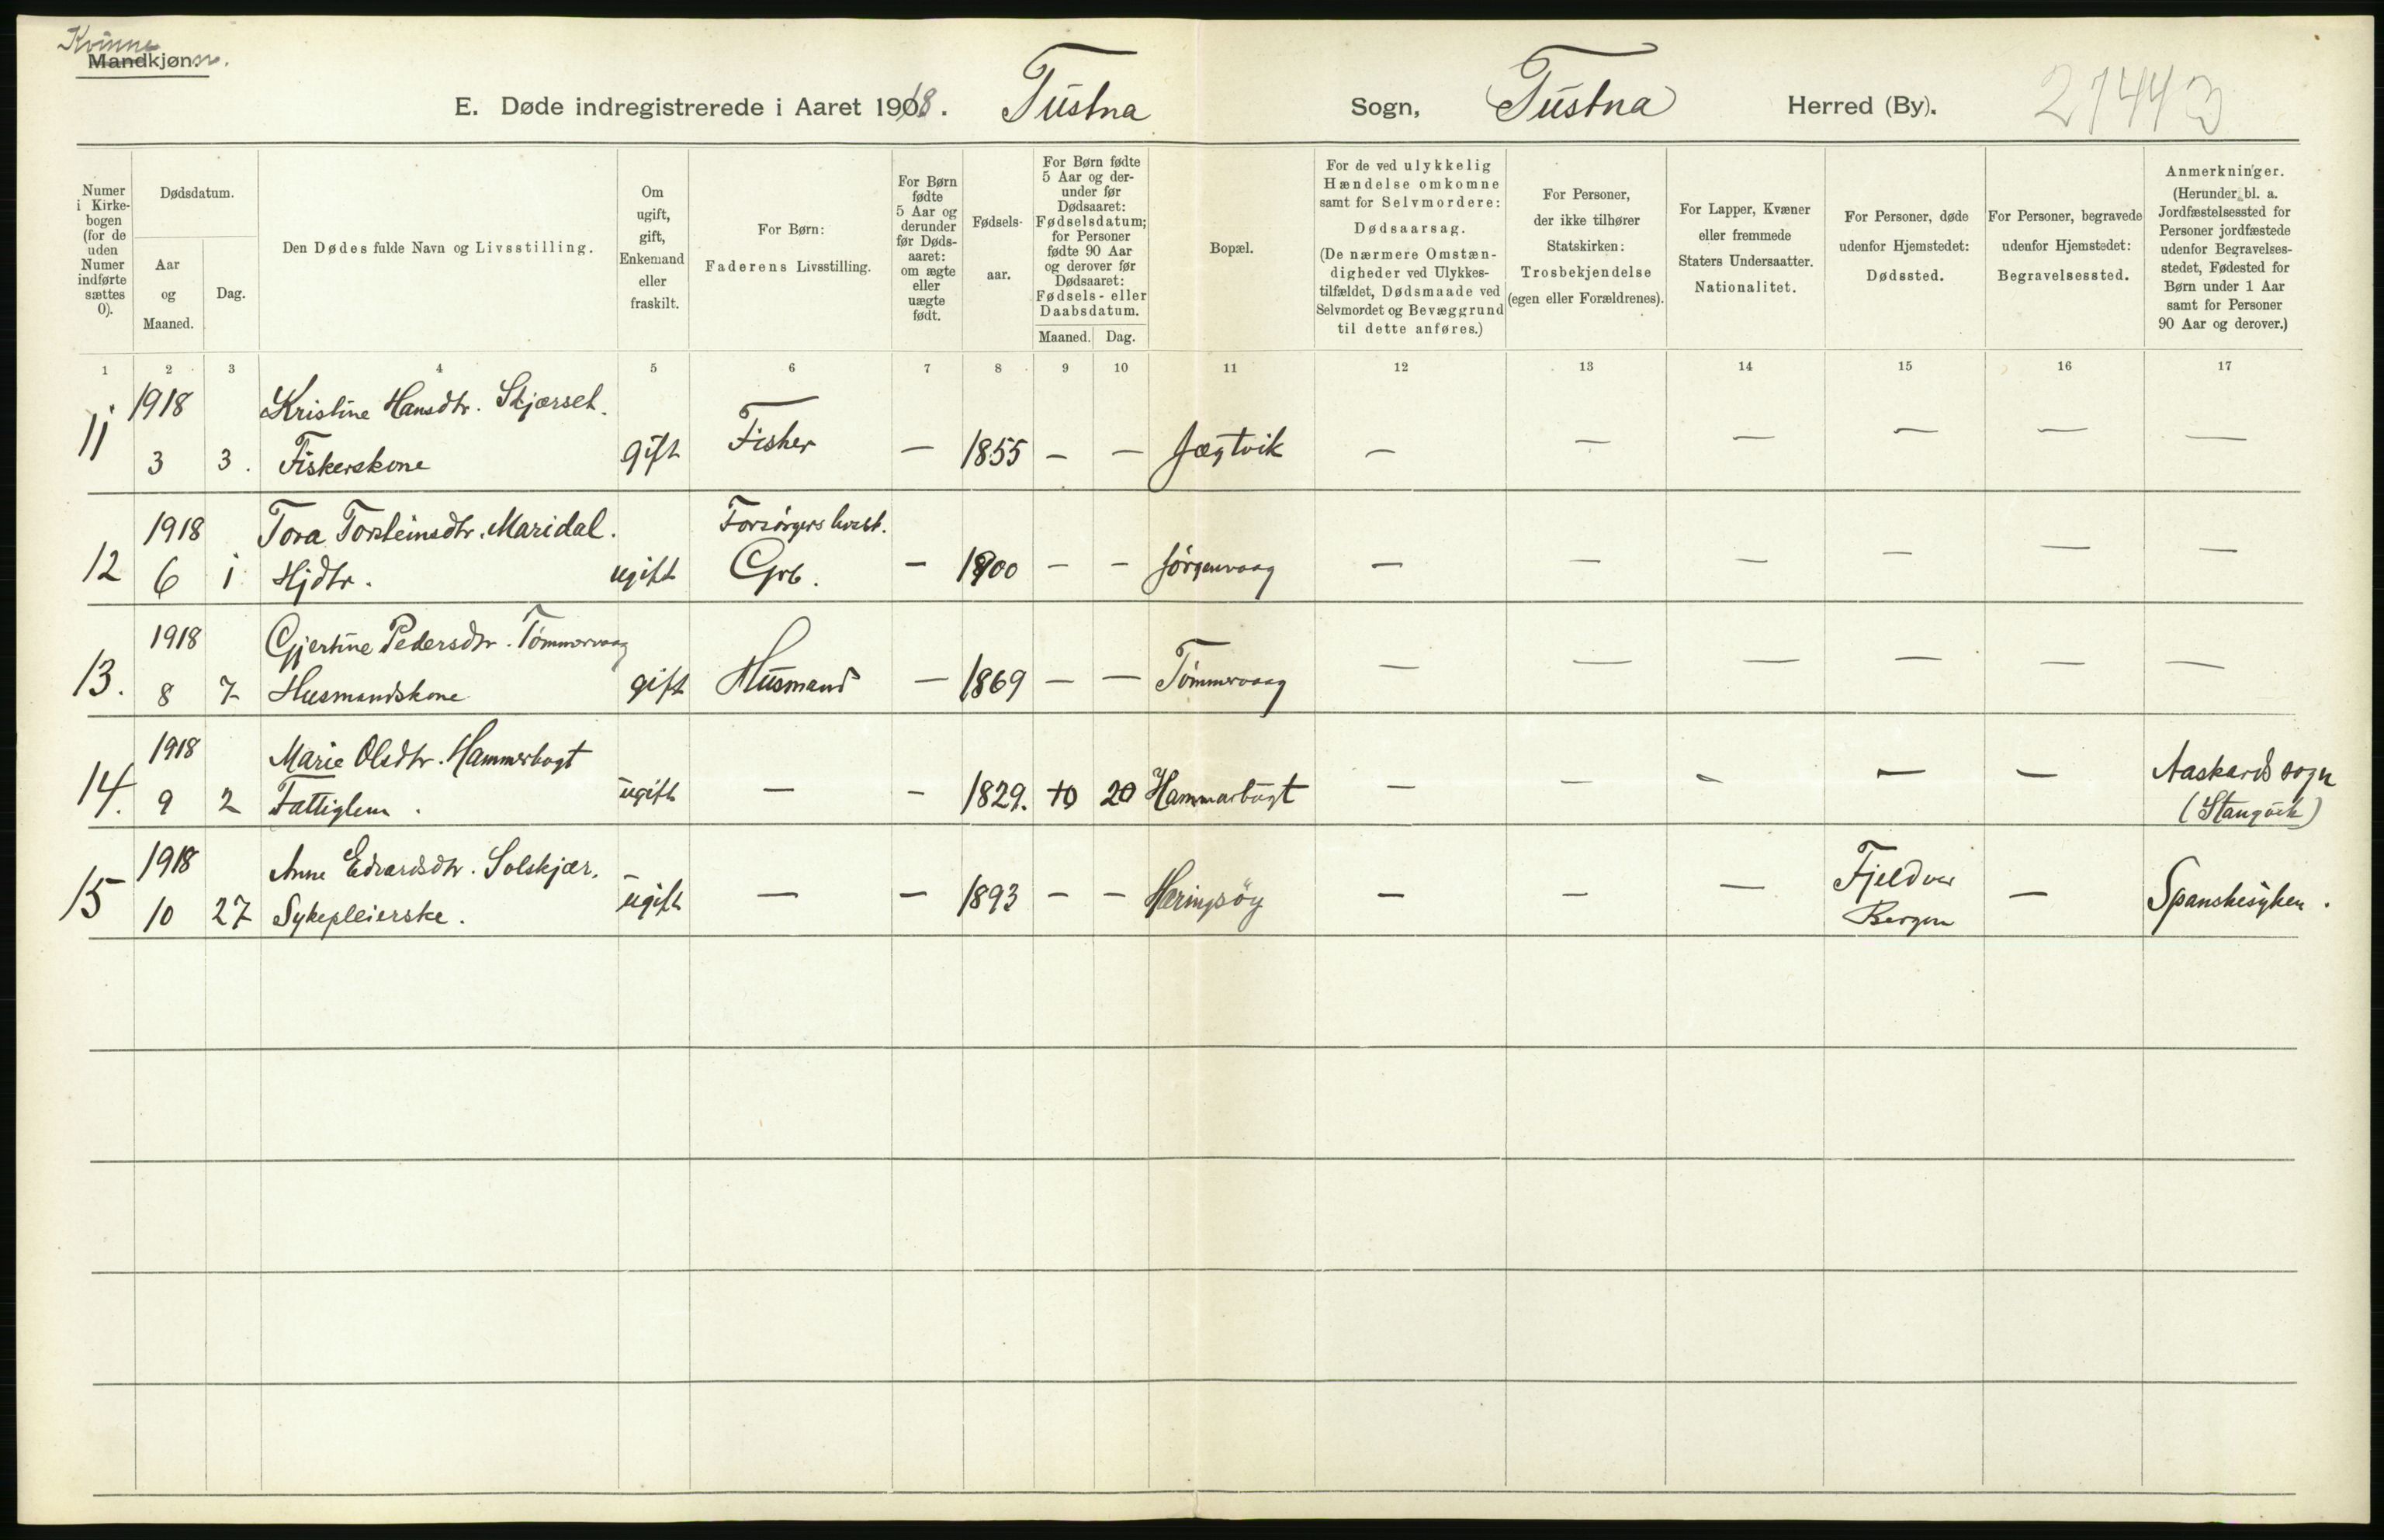 Kvinne
Mandkjøn
E. Døde indregistrerede i Aaret 1918. Tustna Sogn, Tustna Herred (By). 27443
Numer i Kirkebogen (for de uden Numer indførte sættes 0).
Dødsdatum.
Aar og Maaned.
Dag.
Den Dødes fulde Navn og Livsstilling.
Om ugift, gift, Enkemand eller fraskilt.
For Børn:
Faderens Livsstilling.
For Børn fødte 5 Aar og derunder før Dødsaaret: om ægte eller uægte født.
Fødselsaar.
For Børn fødte 5 Aar og derunder før Dødsaaret: Fødselsdatum; for Personer fødte 90 Aar og derover før Dødsaaret: Fødsels- eller Daabsdatum.
Maaned. Dag.
Bopæl.
For de ved ulykkelig Hændelse omkomne samt for Selvmordere:
Dødsaarsag.
(De nærmere Omstændigheder ved Ulykkestilfældet, Dødsmaade ved Selvmordet og Bevæggrund til dette anføres.)
For Personer, der ikke tilhører Statskirken:
Trosbekjendelse (egen eller Forældrenes).
For Lapper, Kvæner eller fremmede Staters Undersaatter.
Nationalitet.
For Personer, døde udenfor Hjemstedet:
Dødssted.
For Personer, begravede udenfor Hjemstedet:
Begravelsessted.
Anmerkninger.
(Herunder bl. a. Jordfæstelsessted for Personer jordfæstede udenfor Begravelsesstedet, Fødested for Børn under 1 Aar samt for Personer 90 Aar og derover.)
1 2 3 4 5 6 7 8 9 10 11 12 13 14 15 16 17
1918 Kristine Hansdtr. Skjærset.
11 3 3. Fiskerskone gift Fisker — 1855 — — Jægtvik — — — — — —
1918 Tora Torsteinsdtr. Maridal. Forsørgers livsst.
12 6 1 Hjdtr. ugift Grb. — 1900 — — Jørgenvaag — — — — — —
1918 Gjertine Pedersdtr. Tømmervaag
13. 8 7 Husmandskone gift Husmand — 1869 — — Tømmervaag — — — — — —
1918 Marie Olsdtr. Hammerbugt
14. 9 2 Fattiglem. ugift — — 1829. 10 20 Hammarbugt — — — — — Aaskards sogn
(Stangvik)
1918 Anne Edvardsdtr. Solskjær. Fjeldver
15 10 27 Sykepleierske. ugift — — 1893 — — Haringsøy — — — Bergen — Spanskesyken.